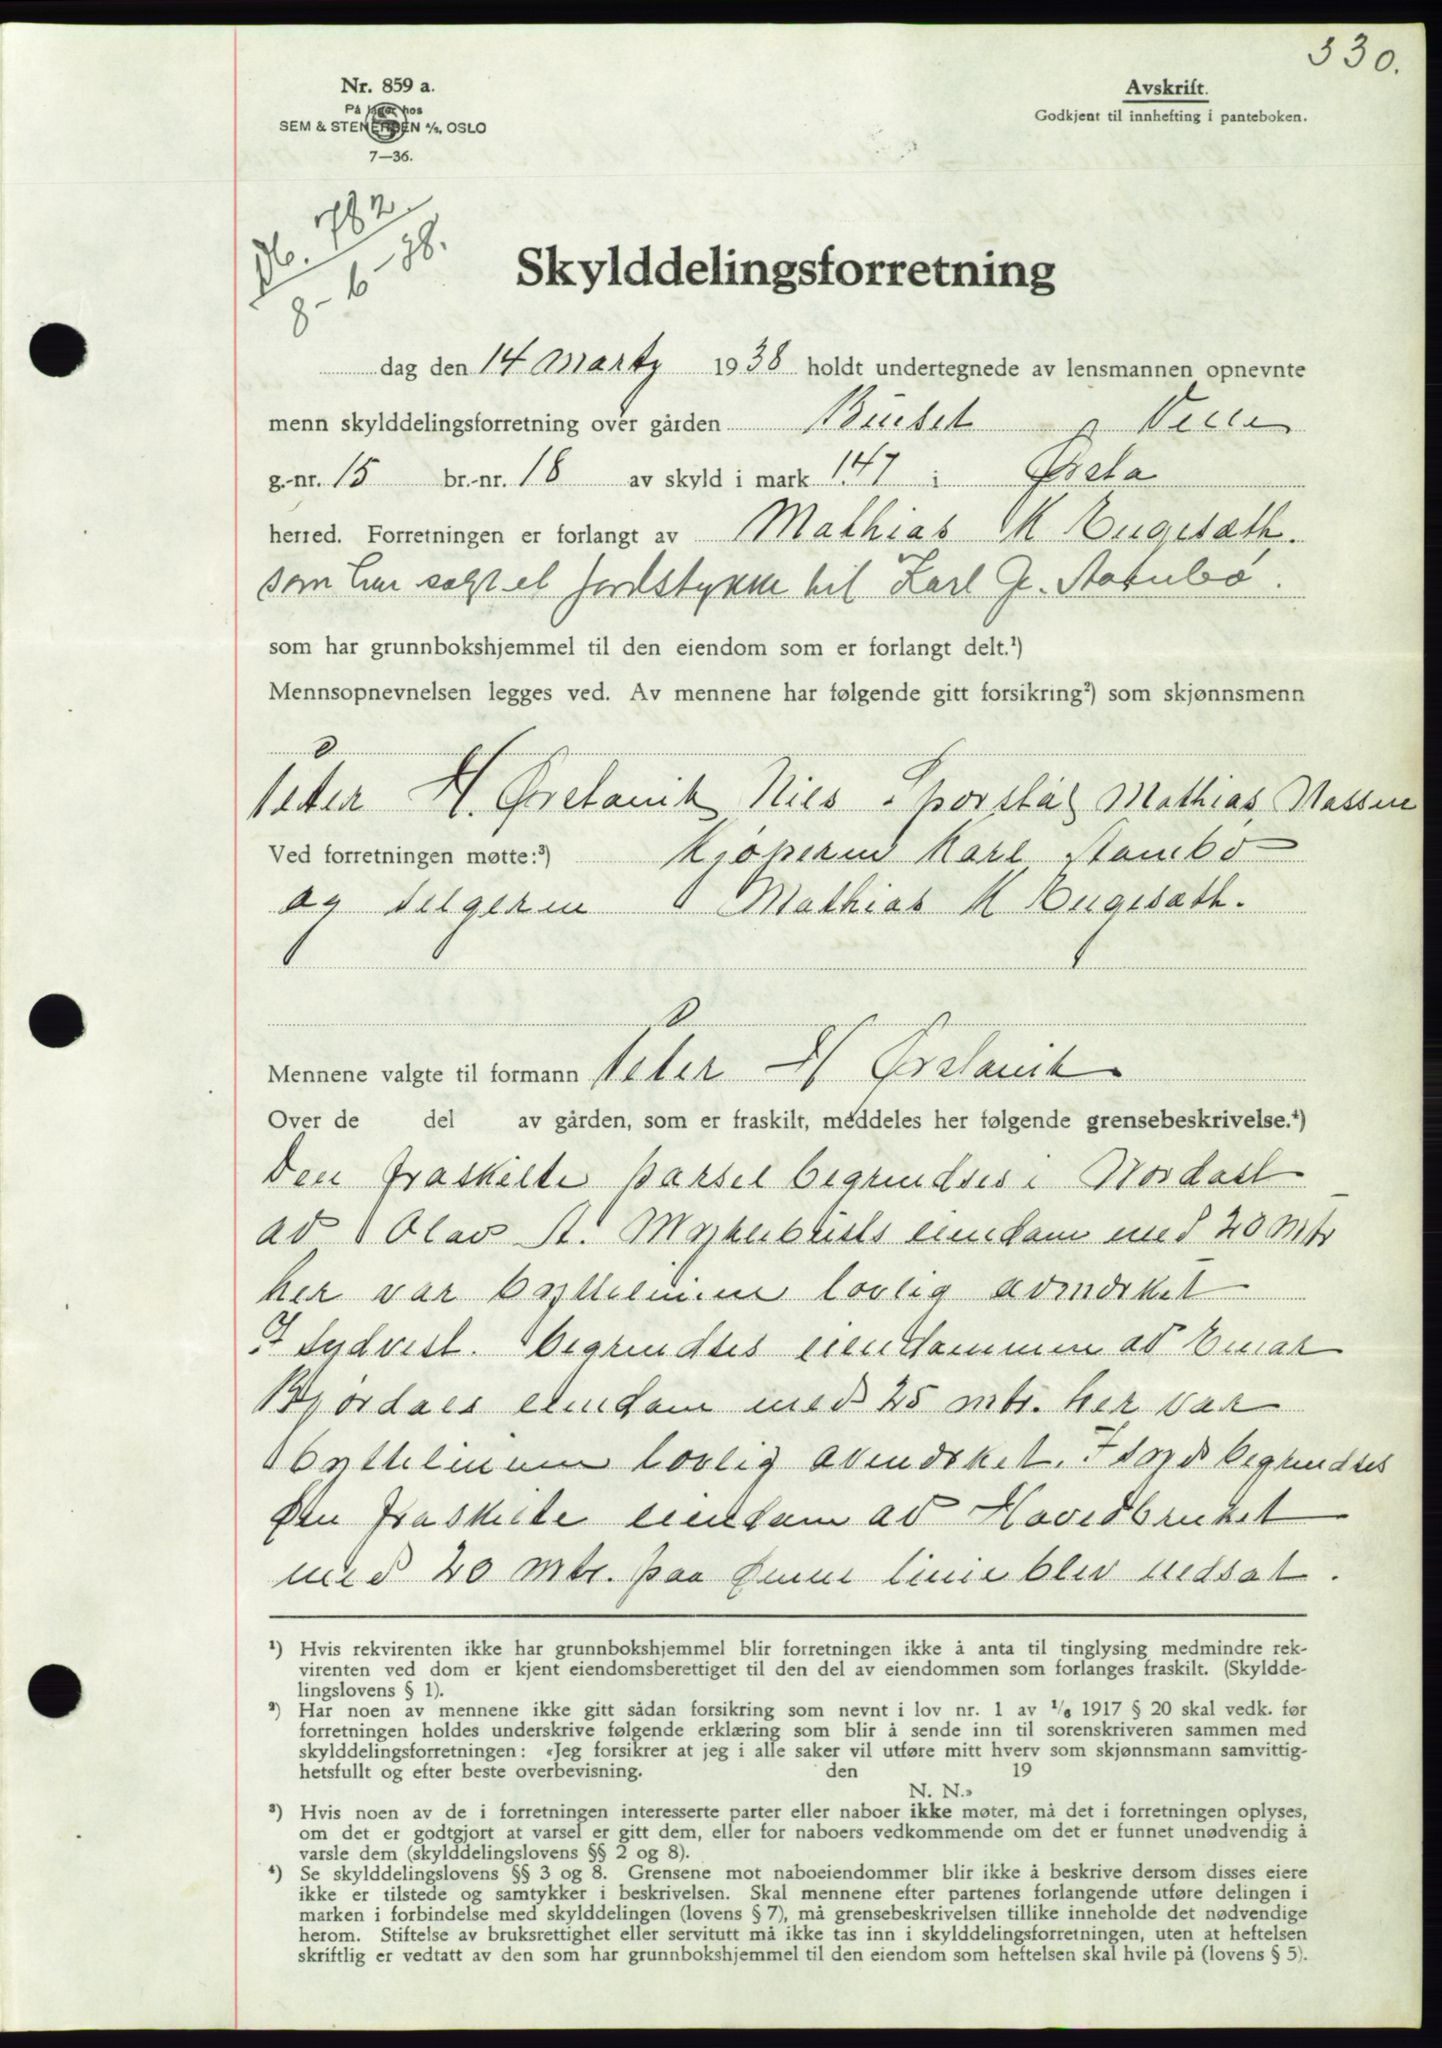 330.
Nr. 859 a.
På lager hos
SEM & STENERSEN A/S, OSLO
7—36.
Avskrift.
Godkjent til innhefting i panteboken.
Db. 782
8-6-38.
Skylddelingsforretning
dag den 14 marts 1938 holdt undertegnede av lensmannen opnevnte
menn skylddelingsforretning over gården Buset Velle
g.-nr. 15 br.-nr. 18 av skyld i mark 1.47 i Ørsta
herred. Forretningen er forlangt av Mathias K Engesæth.
som har solgt et jordstykke til Karl G. Aambø.
som har grunnbokshjemmel til den eiendom som er forlangt delt.¹)
Mennsopnevnelsen legges ved. Av mennene har følgende gitt forsikring²) som skjønnsmenn
Peter H. Ørstavik Nils Sporstøl Mathias Nassen
Ved forretningen møtte:³) Kjøperen Karl Aambø
og selgeren Mathias K Engesæth.
Mennene valgte til formann Peter H Ørstavik
Over de del av gården, som er fraskilt, meddeles her følgende grensebeskrivelse.⁴)
Den fraskilte parsel begrendses i Nordøst
av Olav A. Myklebusts eiendom med 20 mtr
her var byttelinien lovlig avmerket
I Sydvest. begrendses eiendommen av Einar
Bjørdals eiendom med 25 mtr. her var
byttelinien lovlig avmerket. I syd begrendses
den fraskilte eiendom av Hovedbruket
med 20 mtr. paa denne linie blev nedsat.
¹) Hvis rekvirenten ikke har grunnbokshjemmel blir forretningen ikke å anta til tinglysing medmindre rek-
virenten ved dom er kjent eiendomsberettiget til den del av eiendommen som forlanges fraskilt. (Skyldde-
lingslovens § 1).
²) Har noen av mennene ikke gitt sådan forsikring som nevnt i lov nr. 1 av ¹/₆ 1917 § 20 skal vedk. før
forretningen holdes underskrive følgende erklæring som blir å sende inn til sorenskriveren sammen med
skylddelingsforretningen: «Jeg forsikrer at jeg i alle saker vil utføre mitt hverv som skjønnsmann samvittig-
hetsfullt og efter beste overbevisning. den 19
N. N.»
³) Hvis noen av de i forretningen interesserte parter eller naboer ikke møter, må det i forretningen oplyses,
om det er godtgjort at varsel er gitt dem, eller for naboers vedkommende om det er funnet unødvendig å
varsle dem (skylddelingslovens §§ 2 og 8).
⁴) Se skylddelingslovens §§ 3 og 8. Grensene mot naboeiendommer blir ikke å beskrive dersom disses eiere
ikke er tilstede og samtykker i beskrivelsen. Skal mennene efter partenes forlangende utføre delingen i
marken i forbindelse med skylddelingen (lovens § 7), må grensebeskrivelsen tillike inneholde det nødvendige
herom. Stiftelse av bruksrettighet eller servitutt må ikke tas inn i skylddelingsforretningen, uten at heftelsen
skriftlig er vedtatt av den som har grunnbokshjemmel til den eiendom som heftelsen skal hvile på (lovens § 5).